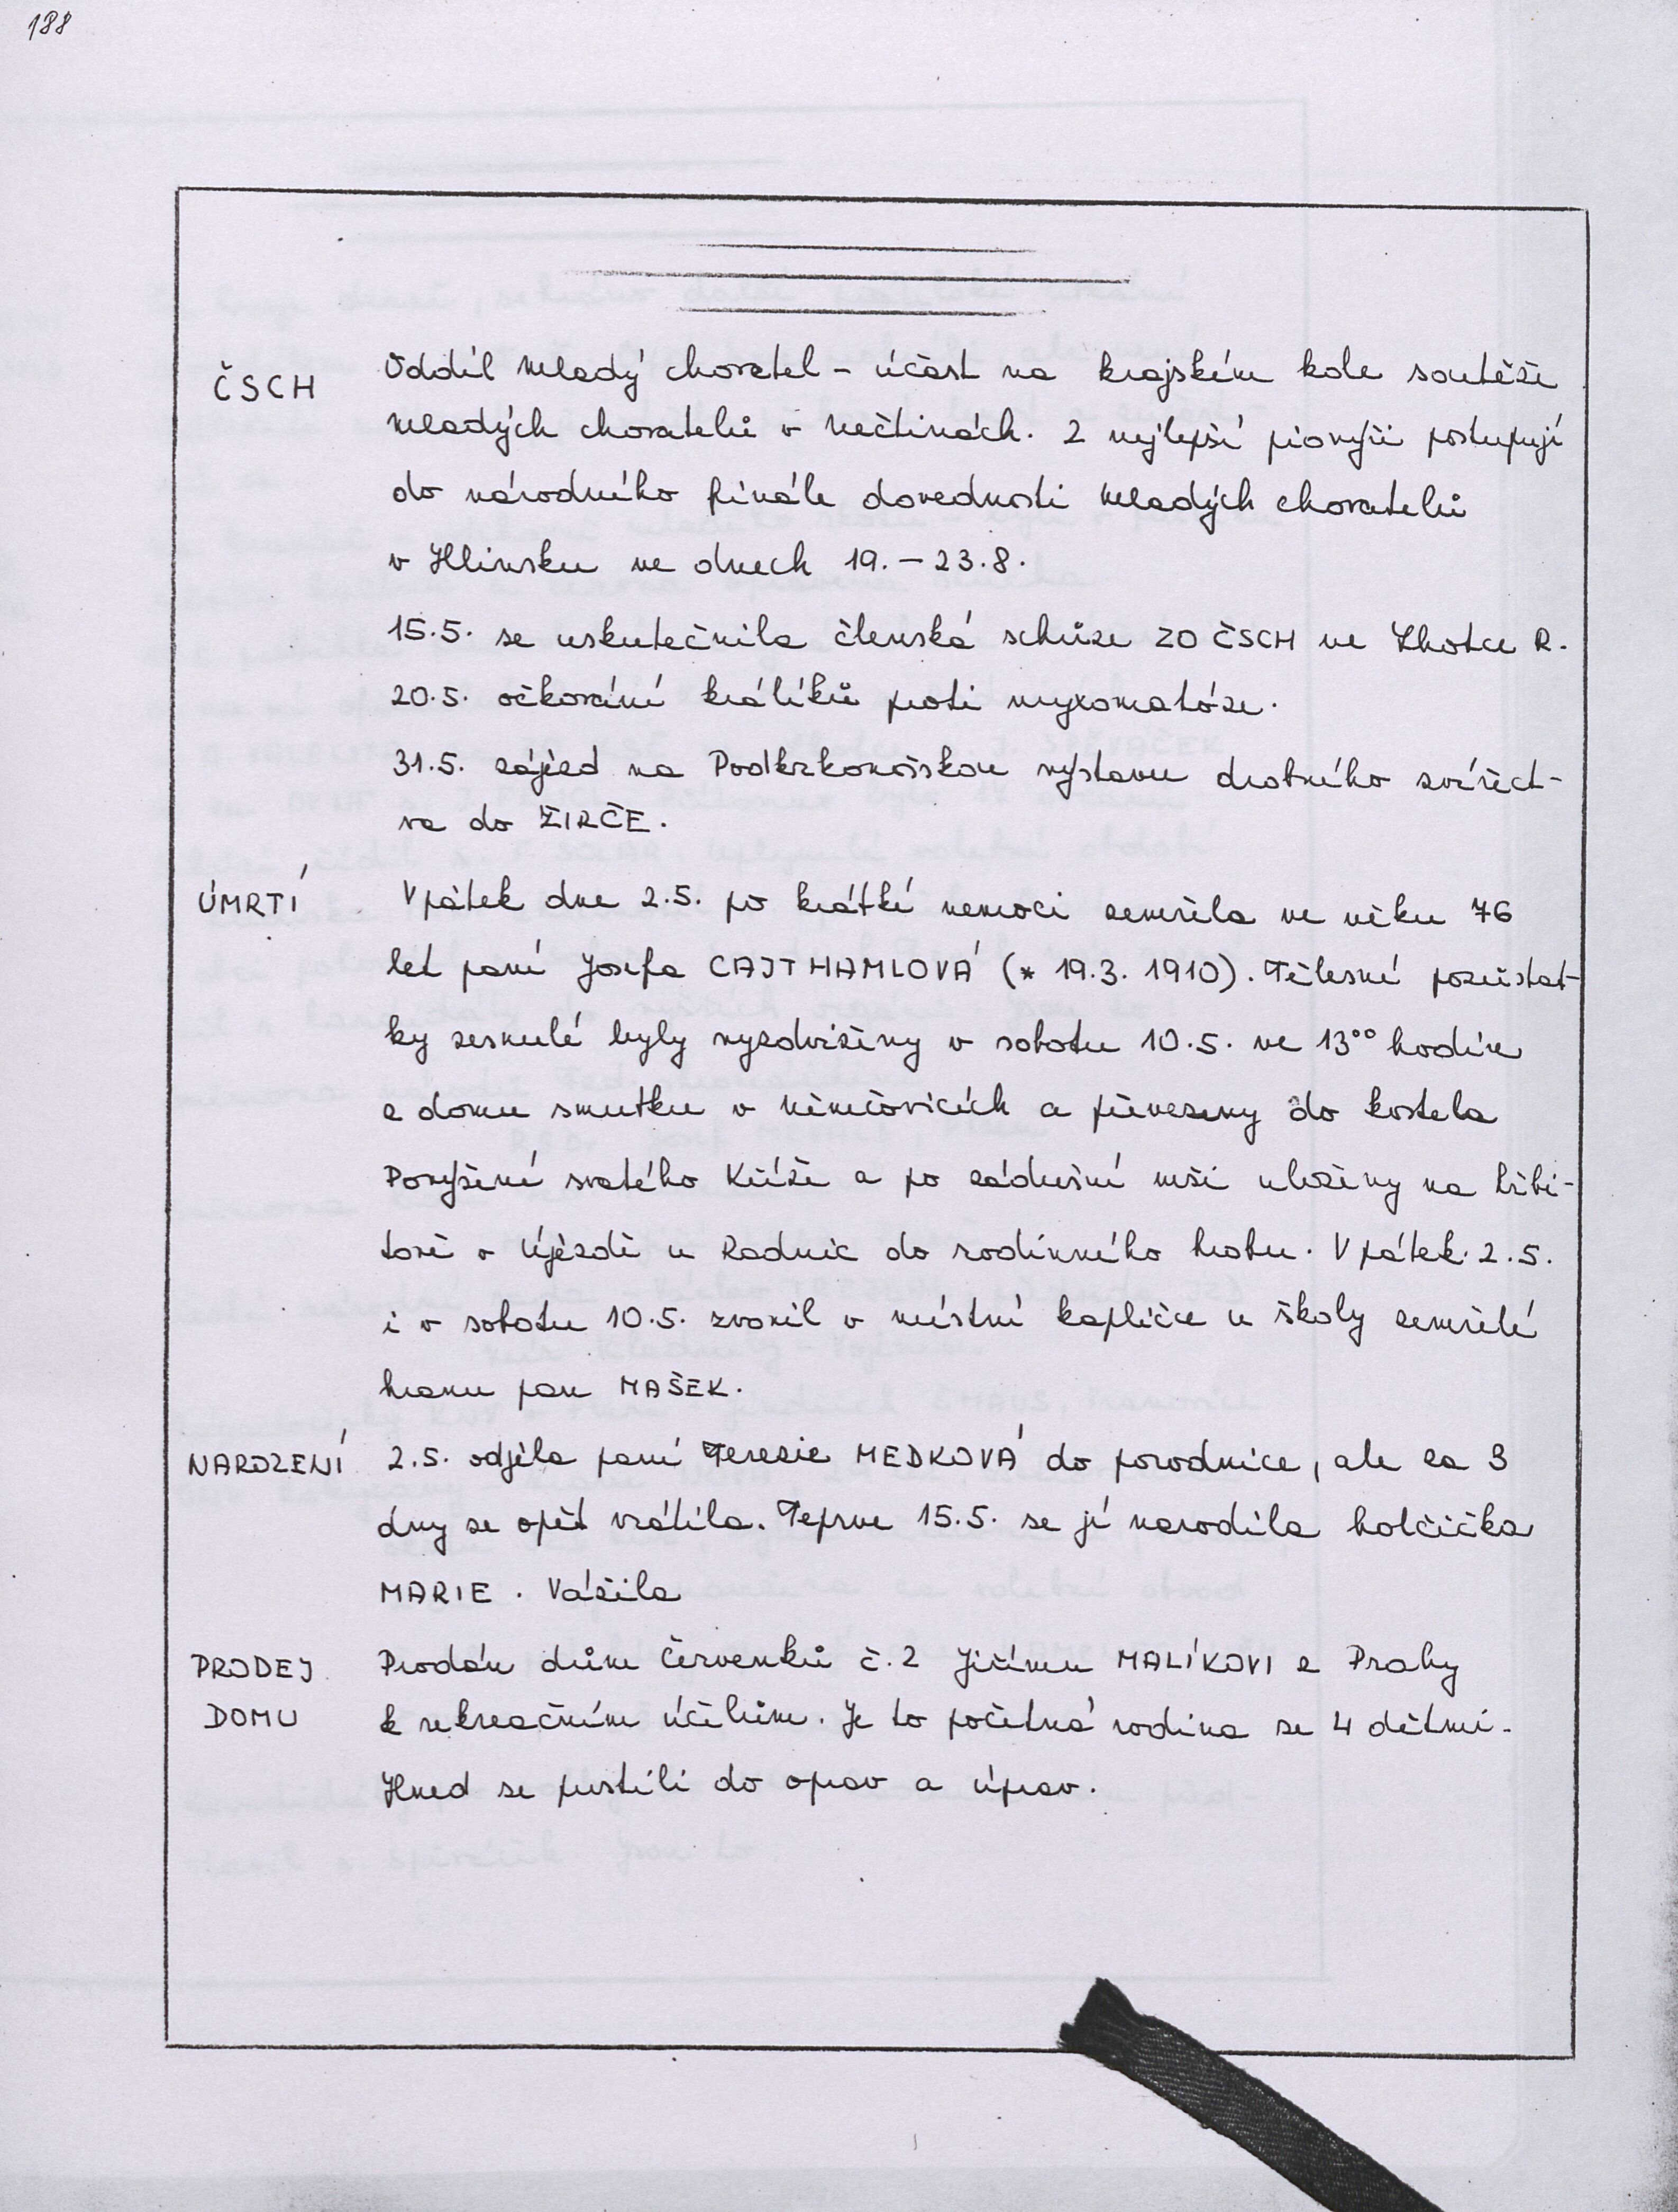 188
ČSCH Oddíl Mladý chovatel - účast na krajském kole soutěže
mladých chovatelů v Nečtinách. 2 nejlepší pionýři postupují
do národního finále dovednosti mladých chovatelů
v Hlinsku ve dnech 19. – 23.8.
15.5. se uskutečnila členská schůze ZO ČSCH ve Lhotce R.
20.5. očkování králíků proti myxomatóze.
31.5. zájezd na Podkrkonošskou výstavu drobného zvířect-
va do ŽIRČE.
ÚMRTÍ V pátek dne 2.5. po krátké nemoci zemřela ve věku 76
let paní Josefa CAJTHAMLOVÁ (* 19.3. 1910). Tělesné pozůstat-
ky zesnulé byly vyzdviženy v sobotu 10.5. ve 13°° hodin
z domu smutku v Němčovicích a převezeny do kostela
Povýšení svatého Kříže a po zádušní mši uloženy na hřbi-
tově v Újezdě u Radnic do rodinného hrobu. V pátek 2.5.
i v sobotu 10.5. zvonil v místní kapličce u školy zemřelé
hranu pan MAŠEK.
NAROZENÍ 2.5. odjela paní Terezie MEDKOVÁ do porodnice, ale za 3
dny se opět vrátila. Teprve 15.5. se jí narodila holčička
MARIE. Vážila
PRODEJ Prodán dům Červenků č.2 Jiřímu MALÍKOVI z Prahy
DOMU k rekreačním účelům. Je to početná rodina se 4 dětmi.
Hned se pustili do oprav a úprav.